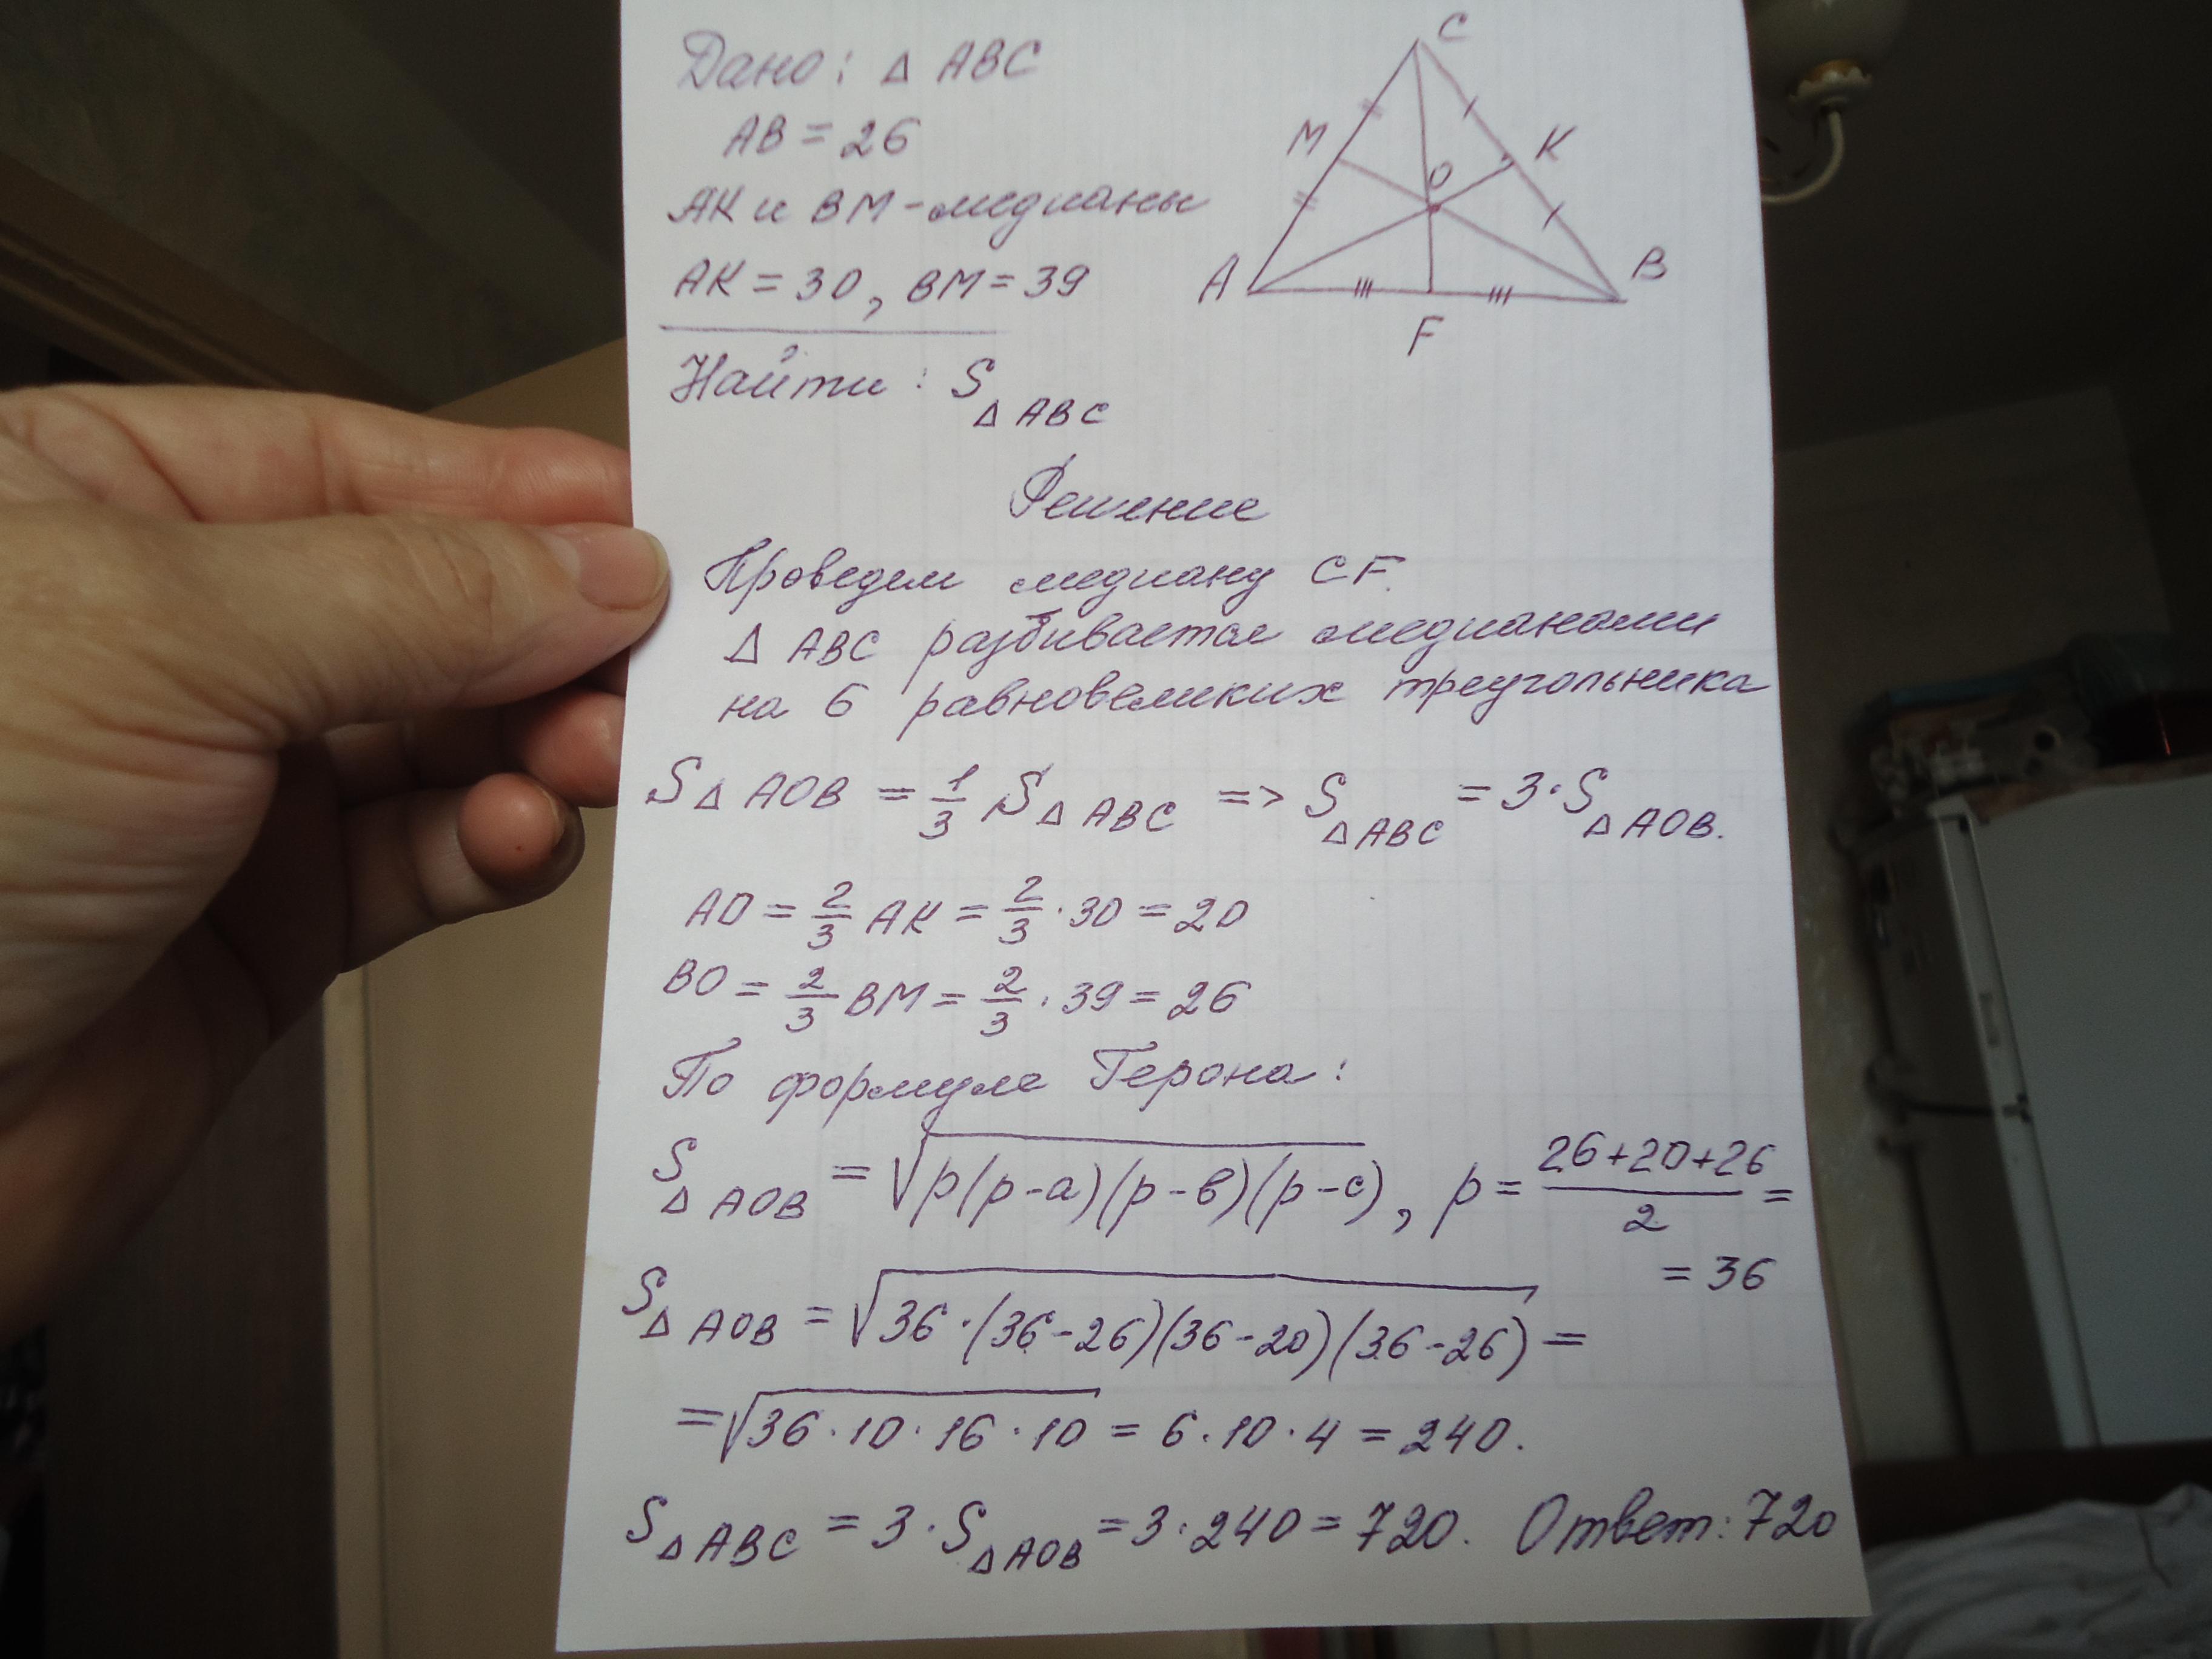 Дано: Δ ABC
AB = 26
AK и BM - медианы
AK = 30, BM = 39
Найти: S Δ ABC
C
M
K
O
A
B
F
Решение
Проведем медиану CF.
Δ ABC разбивается медианами
на 6 равновеликих треугольника
S Δ AOB = 1/3 S Δ ABC => S Δ ABC = 3·S Δ AOB.
AO = 2/3 AK = 2/3 · 30 = 20
BO = 2/3 BM = 2/3 · 39 = 26
По формуле Герона:
S Δ AOB = √(p(p-a)(p-в)(p-c)), p = (26+20+26)/2 =
= 36
S Δ AOB = √(36·(36-26)(36-20)(36-26)) =
= √(36·10·16·10) = 6·10·4 = 240.
S Δ ABC = 3·S Δ AOB = 3·240 = 720. Ответ: 720